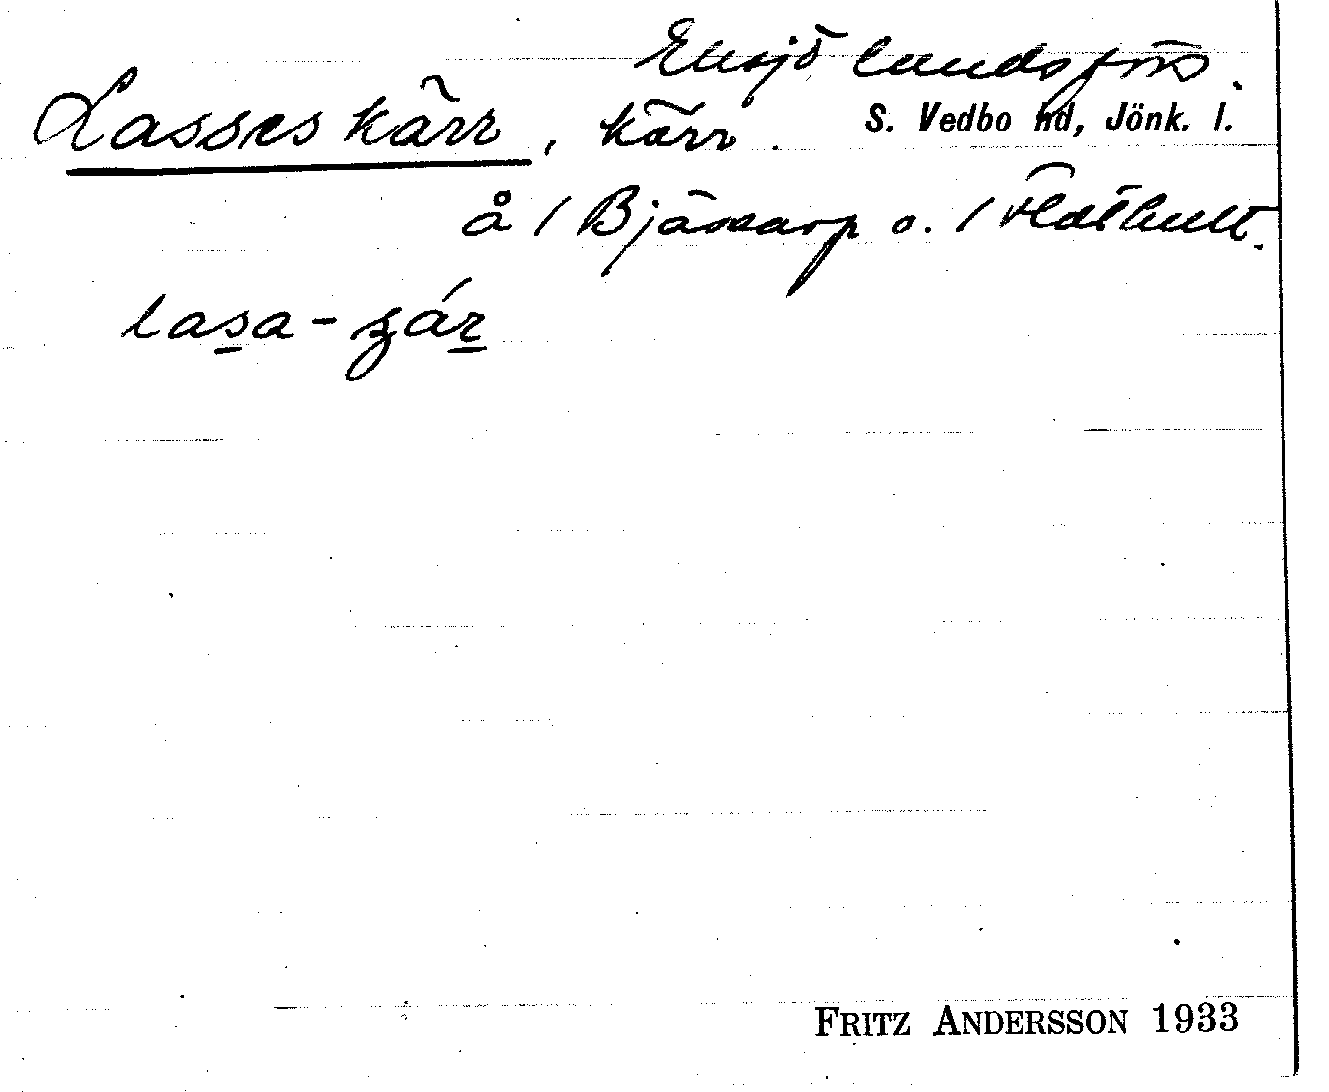 Eksjö landsförs.
Lasses kärr, kärr. S. Vedbo hd, Jönk. l.
å / Bjässarp o. /
lasa-zár
FRITZ ANDERSSON 1933